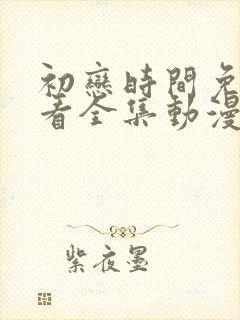 初戀時間免
看全集動漫
紫夜墨